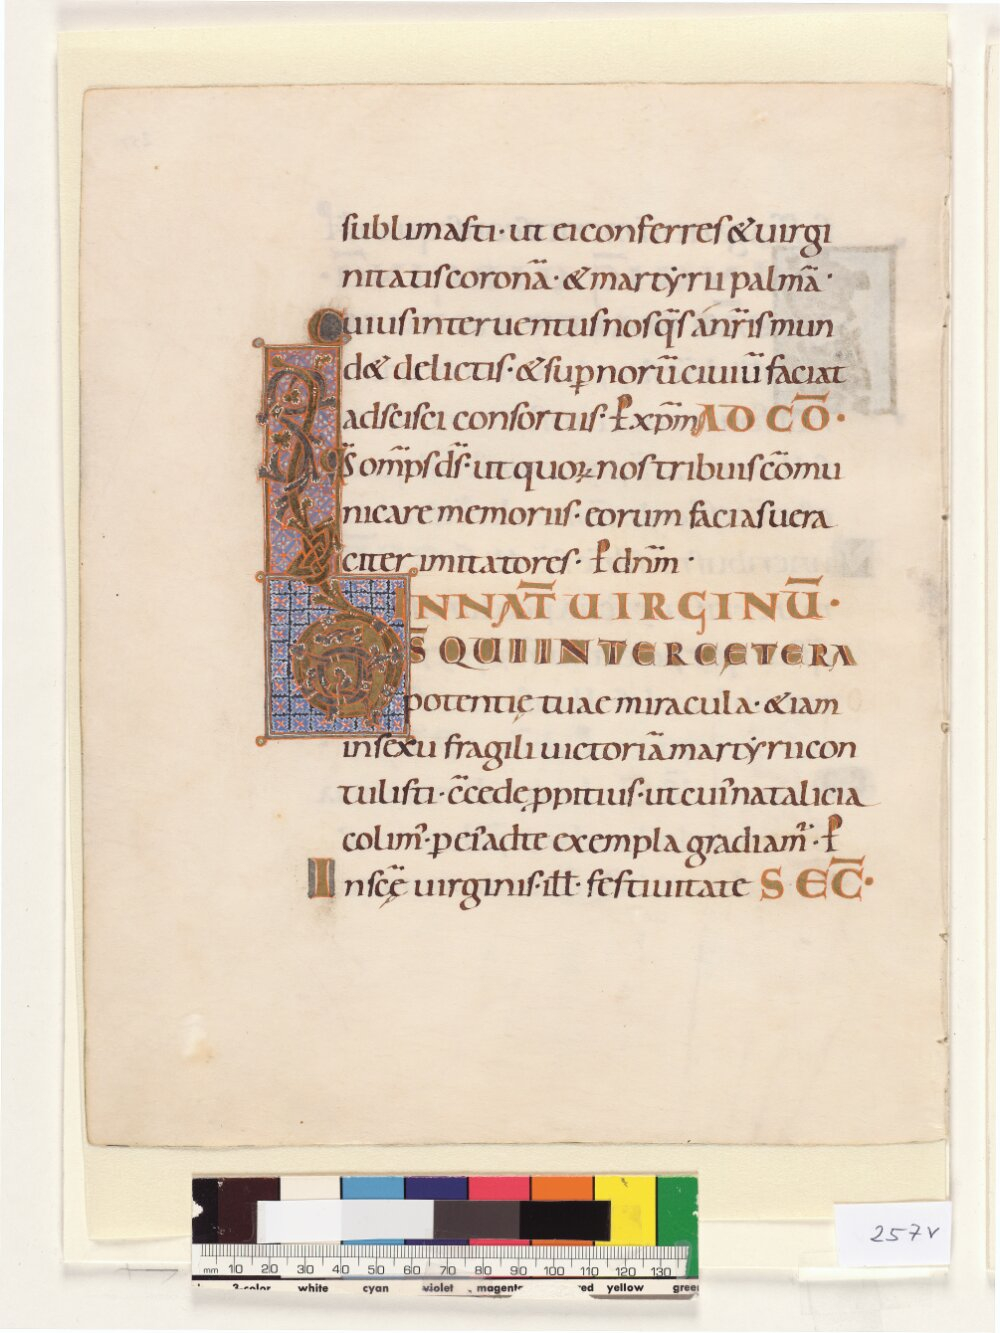 sublimasti· ut ei conferres & uirgi
nitatis coronā· & martẏrii palmā·
Cuius interuentus nos q̄s ań r̄is mun
d& delictis· & sup̱norū ciuiū faciat
adscisci consortiis· P̱ xp̄m AD CŌ·
Q̄s om̄ps d̄s· ut quoꝝ nostribuis cōmu
nicare memoriis· eorum facias uera
citer imitatores· P̱ dn̄m·
IN NAT̄ UIRGINŪ·
D̄S QUI INTER CĘTERA
potentię tuae miracula· & iam
in sexu fragili uictoriā martẏrii con
tulisti· c̄cede p̱pitius· ut cui᷒ natalicia
colim᷒· p̱ ei᷒ ad te exempla gradiam᷒· P̱
In sc̄ę uirginis· ill̄· festiuitate SEC̄·
mm 10 20 30 40 50 60 70 80 90 100 110 120 130
3-color white cyan violet magenta red yellow green
257v